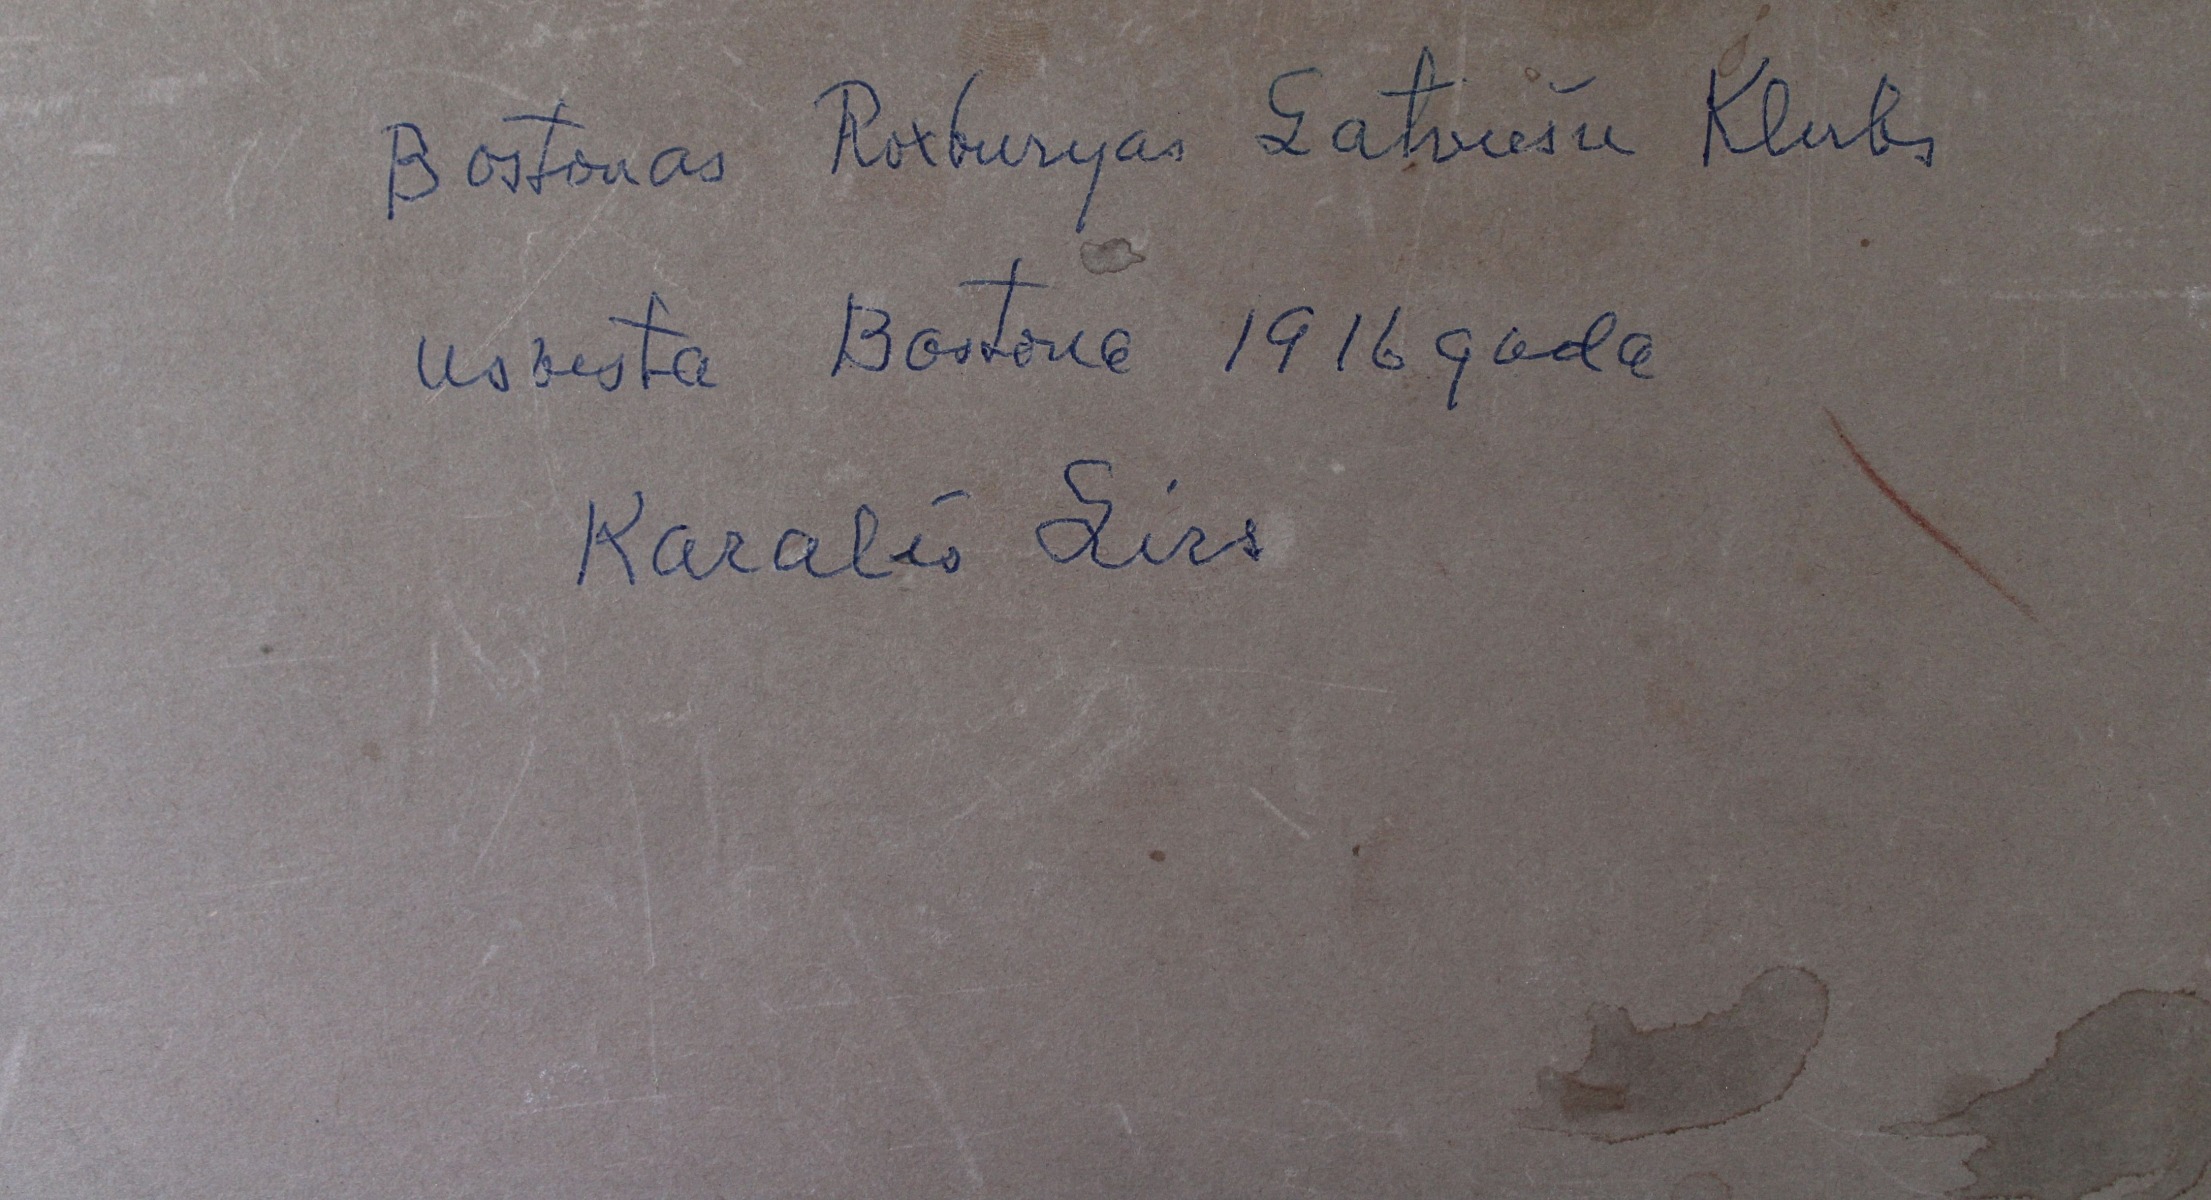 Bostonas Roxburyas Latviešu Klubs
usvesta Bostonā 1916 gada
Karalis Lirs